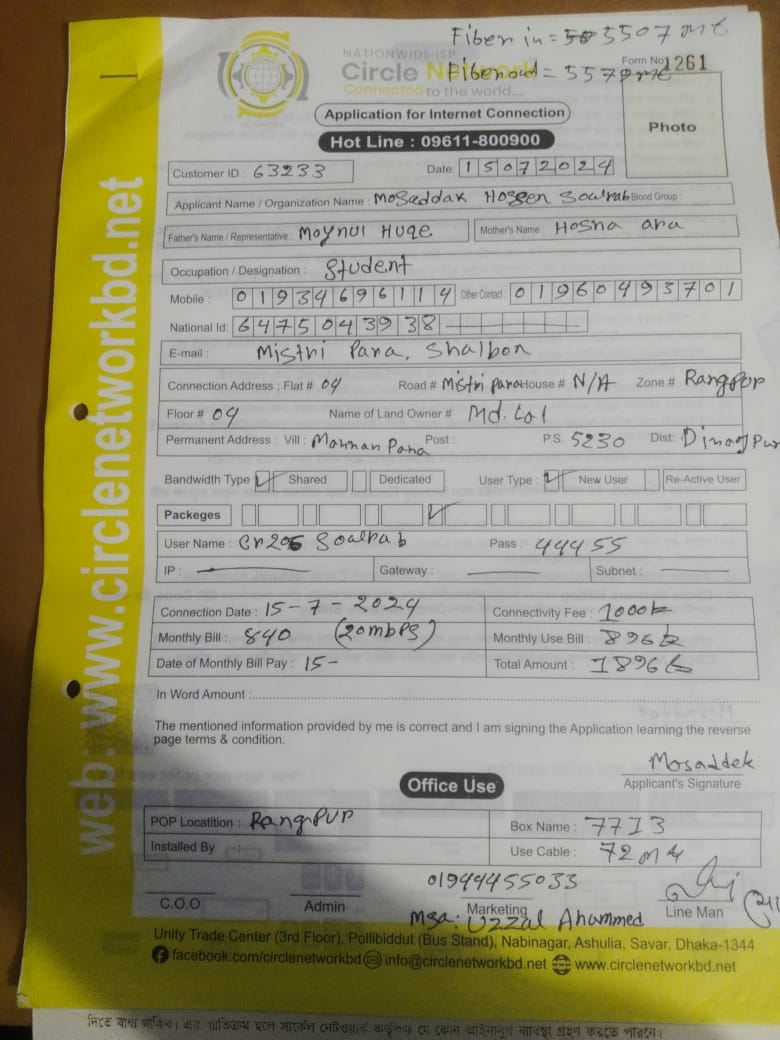 Fiber in = 5507 mt
NATIONWIDE ISP
Form No 1261
Circle Network
Fiber out = 5579 mt
Connected to the world....
Application for Internet Connection
Photo
Hot Line : 09611-800900
Customer ID : 63233 Date: 15072024
Applicant Name / Organization Name : Mosaddak Hossen Soalrab Blood Group :
Father's Name / Representative : Moynul Huqe Mother's Name : Hosna ara
Occupation / Designation : Student
Mobile : 01934696114 Other Contact : 01960493701
National Id: 6475043938
E-mail : Mistri Para, Shalbon
Connection Address : Flat # 04 Road # Mistri para House # N/A Zone # Rangpur
Floor # 04 Name of Land Owner # Md. Lal
Permanent Address : Vill : Mannan Para Post : P.S. 5230 Dist: Dinajpur
Bandwidth Type ✓ Shared Dedicated User Type : ✓ New User Re-Active User
Packeges ✓
User Name : Soalrab Pass : 44455
IP : Gateway : Subnet :
Connection Date : 15-7-2024 Connectivity Fee : 1000tk
Monthly Bill : 840 (20mbps) Monthly Use Bill : 896tk
Date of Monthly Bill Pay : 15- Total Amount : 1896tk
In Word Amount :
The mentioned information provided by me is correct and I am signing the Application learning the reverse
page terms & condition.
Mosaddek
Applicant's Signature
Office Use
POP Locatition : Rangpur Box Name : 7713
Installed By : Use Cable : 72 mt
01944455033
C.O.O Admin Marketing Line Man
Msa: Uzzal Ahammed
Unity Trade Center (3rd Floor), Pollibiddut (Bus Stand), Nabinagar, Ashulia, Savar, Dhaka-1344
facebook.com/circlenetworkbd info@circlenetworkbd.net www.circlenetworkbd.net
web: www.circlenetworkbd.net
দিতে বাধ্য থাকিব। এর ব্যতিক্রম হলে সার্কেল নেটওয়ার্ক কর্তৃপক্ষ যে কোন আইনানুগ ব্যবস্থা গ্রহণ করতে পারবে।